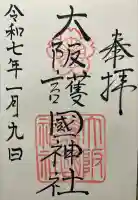 奉拝
大阪護國神社
令和七年一月九日